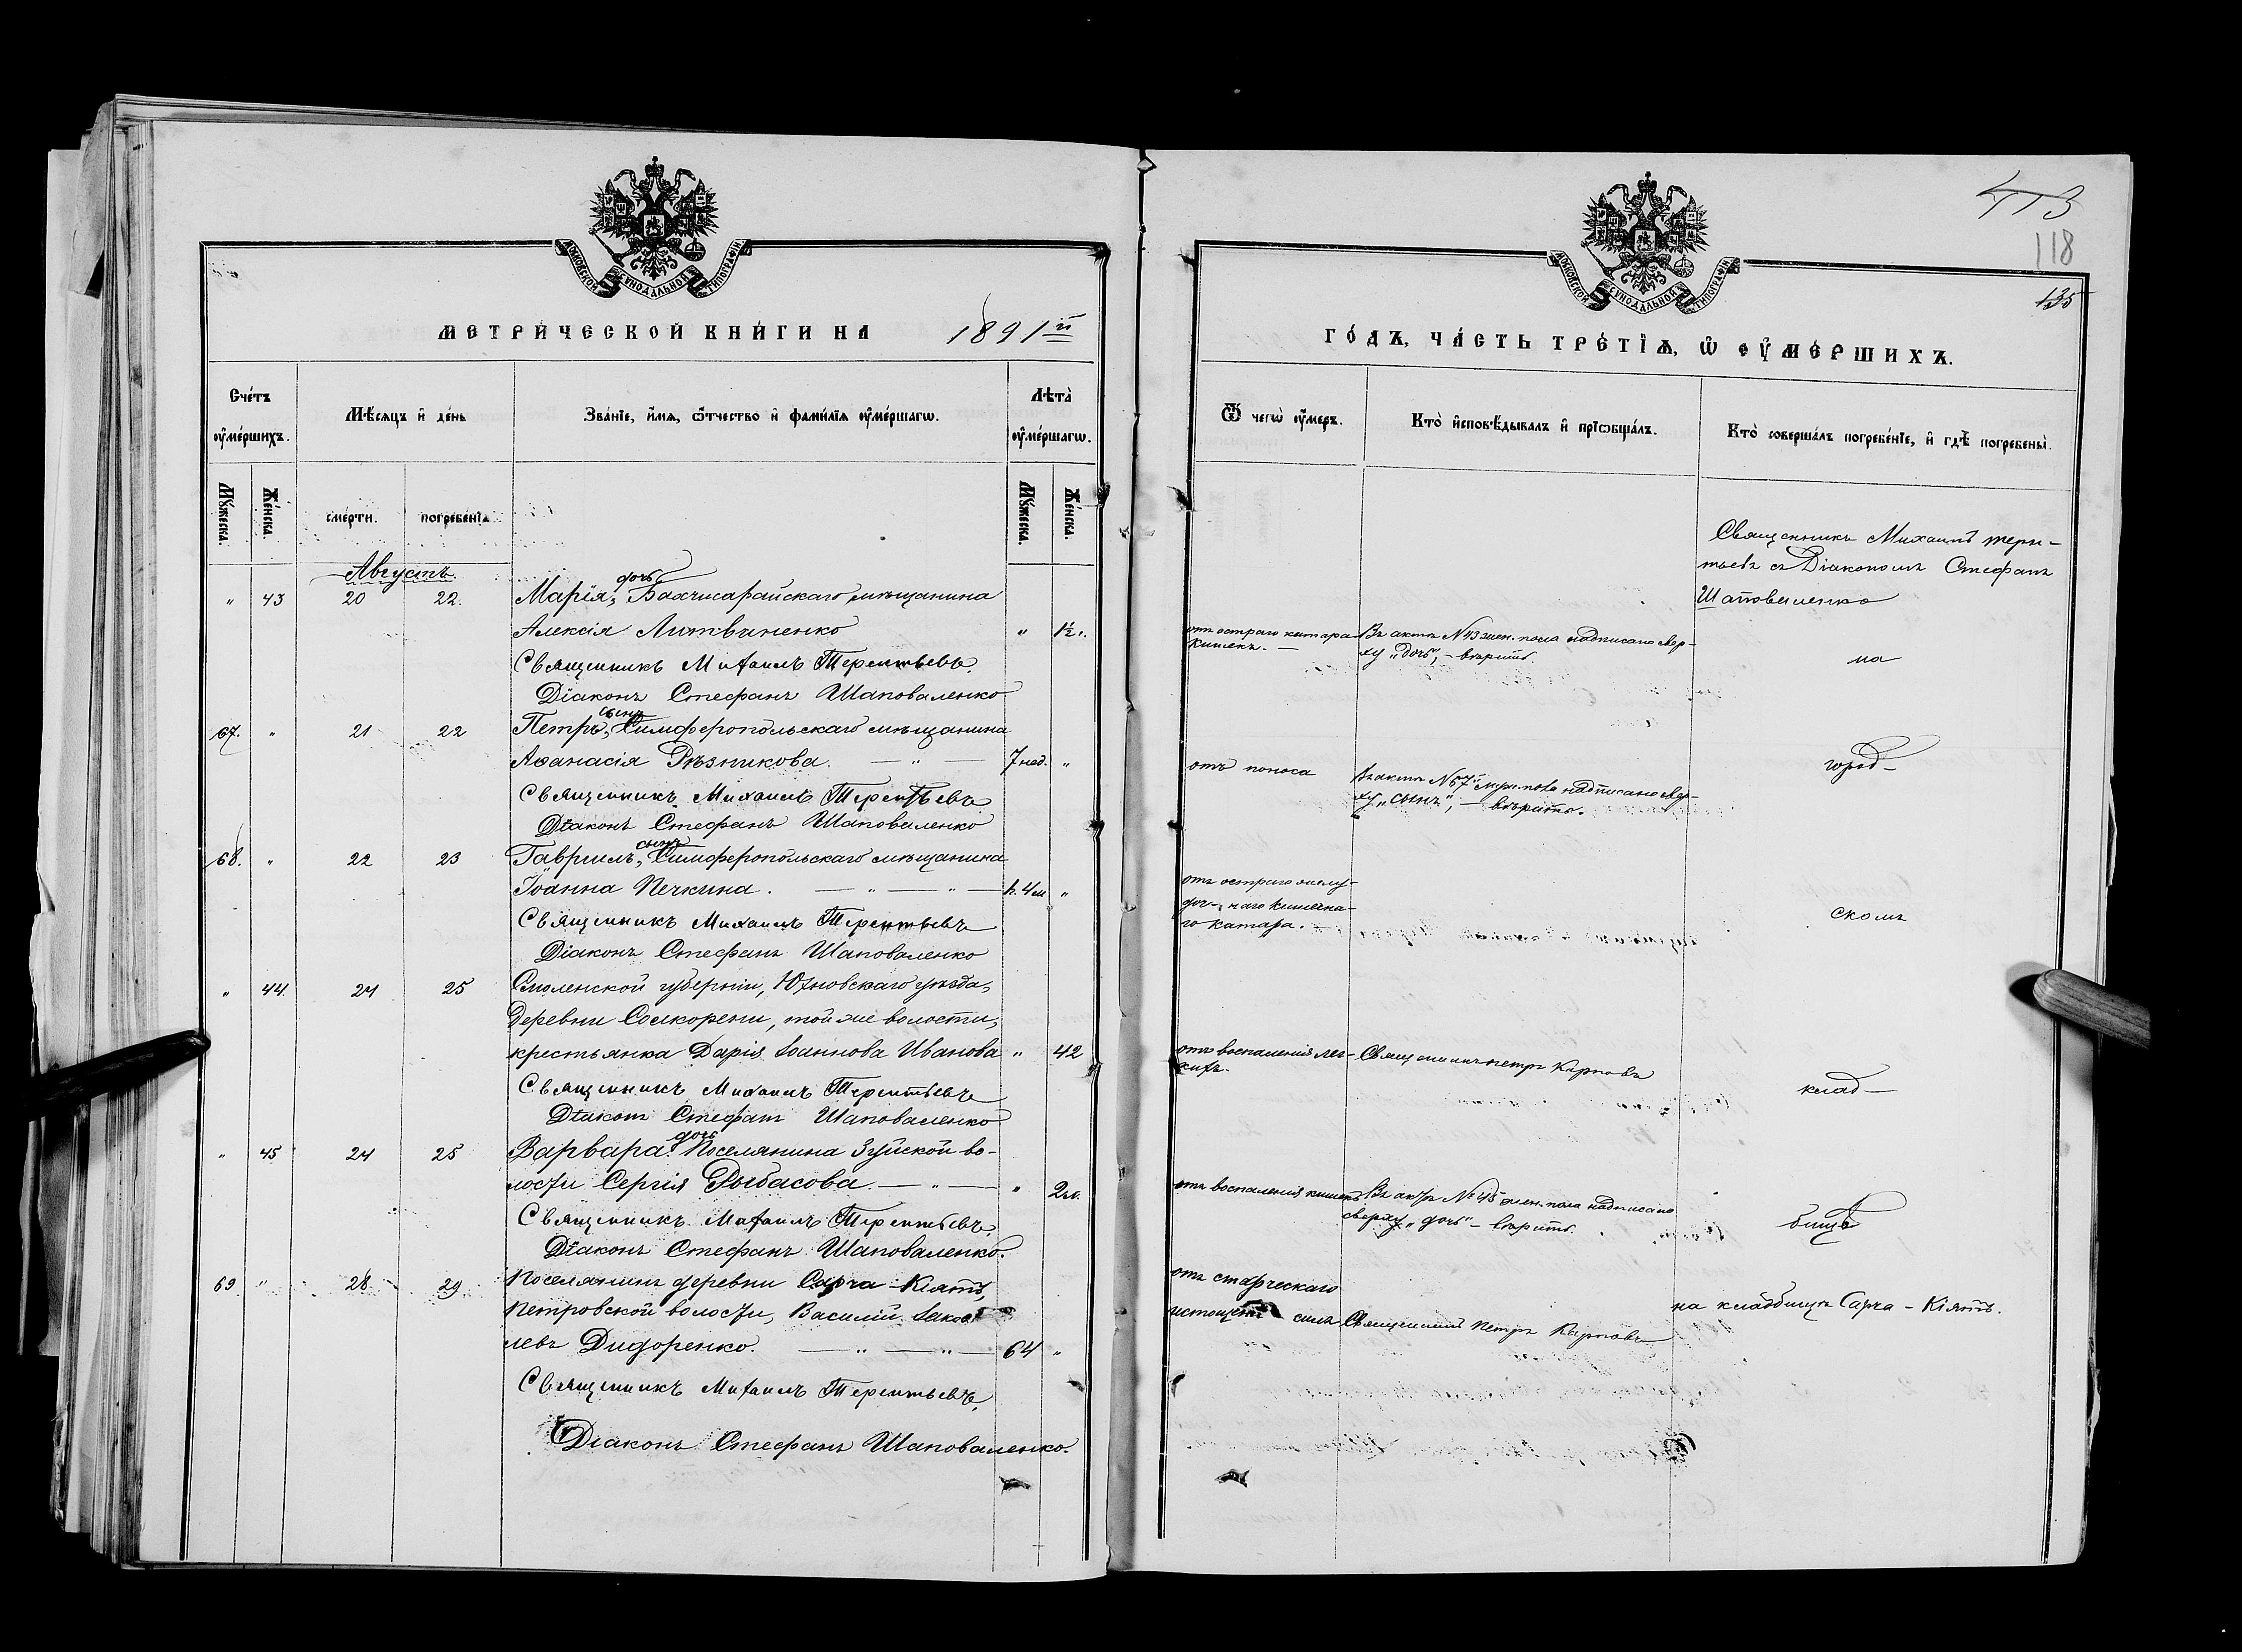 МОСКОВСКОЙ СѴНОДАЛЬНОЙ ТИПОГРАФІИ
МЕТРИЧЕСКОЙ КНИГИ НА 1891й
Счетъ умершихъ.
Мѣсяцъ и день
Званіе, имя, отчество и фамилія умершагѡ.
Лѣта умершагѡ.
Мужеска.
Женска.
смерти.
погребенія.
Мужеска.
Женска.
Августъ.
дочь
" 43 20 22. Марія, Бахчисарайскаго мѣщанина
Алексія Литвиненко " 1½ г.
Священникъ Михаилъ Терентьевъ
Діаконъ Стефанъ Шаповаленко
сынъ
67. " 21 22 Петръ, Симферопольскаго мѣщанина
Аѳанасія Рѣзникова. — " — 7 нед. "
Священникъ Михаилъ Терентьевъ
Діаконъ Стефанъ Шаповаленко
сынъ
68. " 22 23 Гавриилъ, Симферопольскаго мѣщанина
Іоанна Печкина. — " — " — 4 м "
Священникъ Михаилъ Терентьевъ
Діаконъ Стефанъ Шаповаленко
" 44. 24 25 Смоленской губерніи, Юхновскаго уѣзда,
Деревни Солкорени, той же волости,
крестьянка Дарія Іоаннова Иванова " 42
Священникъ Михаилъ Терентьевъ
Діаконъ Стефанъ Шаповаленко
дочь
" 45 24 25 Варвара Поселянина Зуйской во-
лости Сергія Рыбасова. — " — " 2
Священникъ Михаилъ Терентьевъ
Діаконъ Стефанъ Шаповаленко.
69 " 28. 29. Поселянинъ деревни Сарча-Кіятъ,
Петровской волости, Василій Іаков
левъ Дидоренко. — " — " — 64 "
Священникъ Михаилъ Терентьевъ
Діаконъ Стефанъ Шаповаленко.
118
135
МОСКОВСКОЙ СѴНОДАЛЬНОЙ ТИПОГРАФІИ
ГОДЪ, ЧАСТЬ ТРЕТІЯ, Ѡ УМЕРШИХЪ.
Ѿ чегѡ умеръ.
Кто исповѣдывалъ и пріѡбщалъ.
Кто совершалъ погребеніе, и гдѣ погребены.
Священникъ Михаилъ Терен-
тьевъ съ Діакономъ Стефанъ
Шаповаленко
отъ остраго катара Въ актѣ №43 жен. пола надписано свер-
кишекъ. — ху "дочь", — вѣрить.
на
город-
отъ поноса Въ актѣ №67 муж. пола надписано свер-
ху "сынъ", — вѣрить.
отъ остраго желу-
доч-наго кишечна-
го катара. —
скомъ
отъ воспаленія лег- Священникъ Петръ Карповъ
кихъ.
клад-
отъ воспаленія кишекъ Въ актѣ №45 жен. пола надписано
сверху "дочь" — вѣрить.
бищѣ
отъ старческаго
истощенія силъ Священникъ Петръ Карповъ
на кладбищѣ Сарча-Кіятъ.